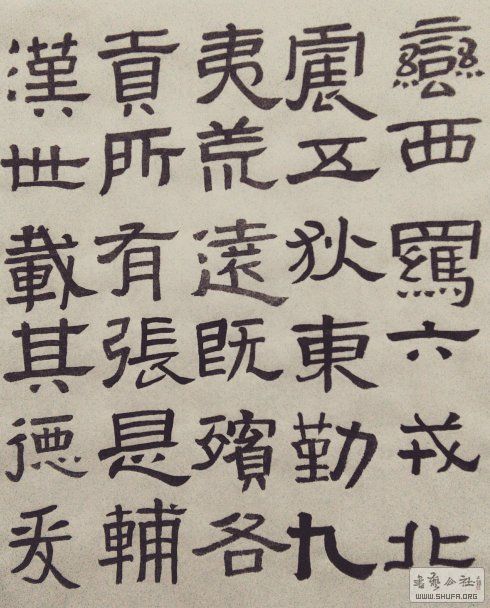 蠻西羈六戎北
震五狄東勤九
夷荒遠既殯各
貢所有張是輔
漢世載其德爰
書藝公社
WWW.SHUFA.ORG